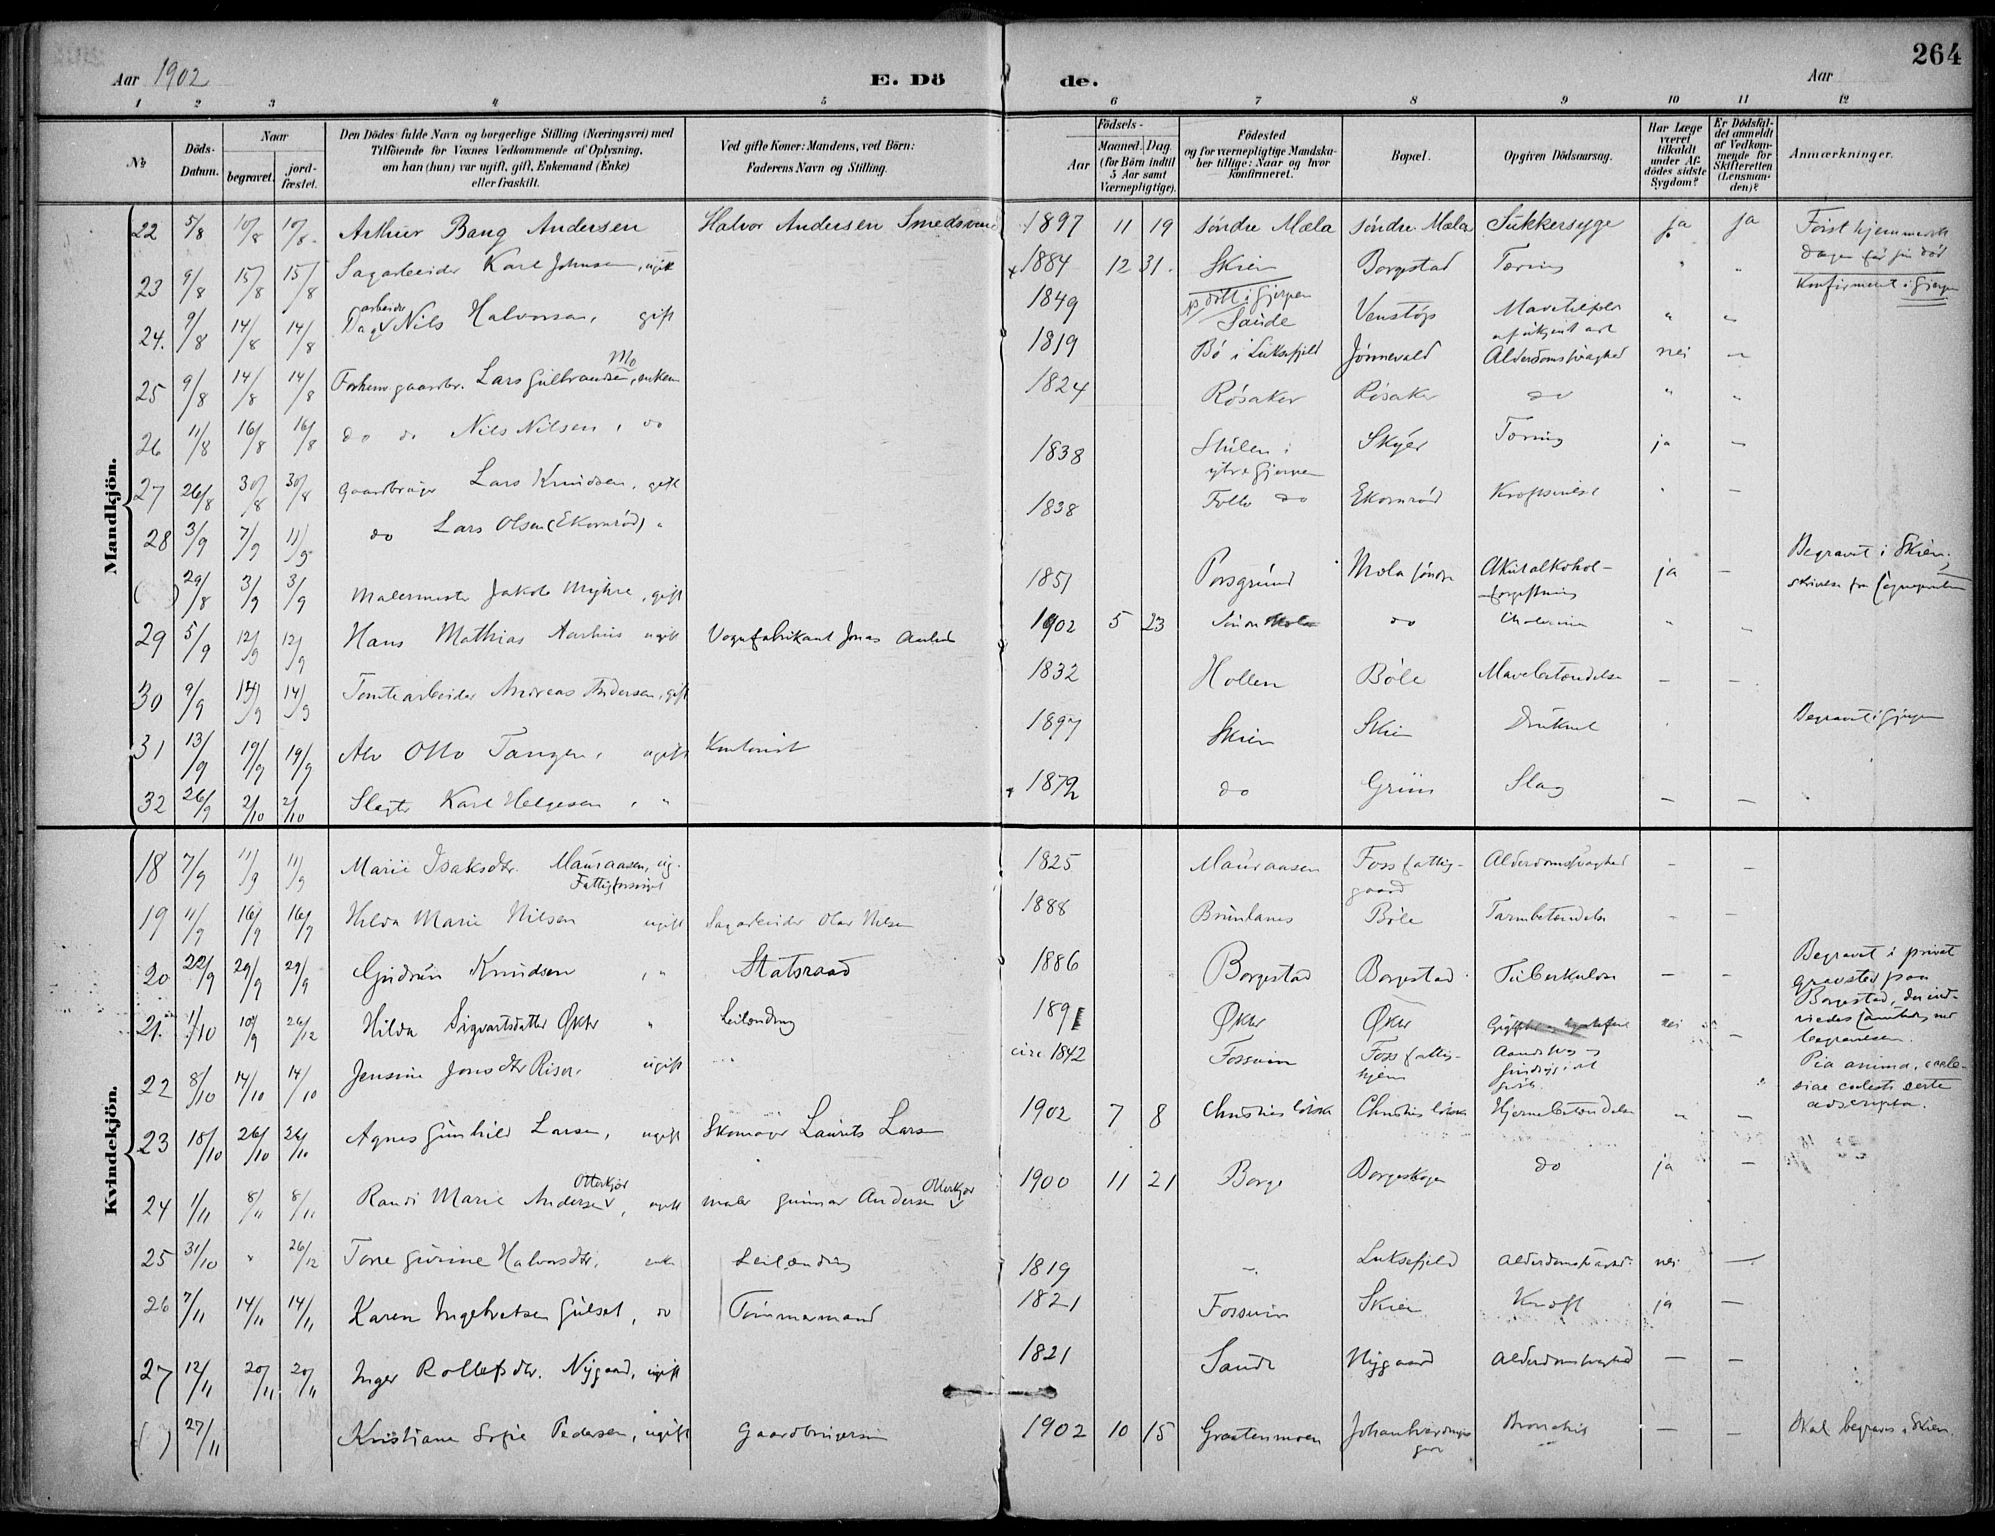 264
Aar 1902 E. Dö de. Aar
1 2 3 4 5 6 7 8 9 10 11 12
No.
Döds-Datum.
Naar begravet. jordfæstet.
Den Dödes fulde Navn og borgerlige Stilling (Næringsvei) med
Tilföiende for Voxnes Vedkommende af Oplysning,
om han (hun) var ugift, gift, Enkemand (Enke)
eller fraskilt.
Ved gifte Koner: Mandens, ved Börn:
Faderens Navn og Stilling.
Födsels-
Aar Maaned. Dag.
(for Börn indtil
5 Aar samt
Værnepligtige).
Födested
og for værnepligtige Mandska-
ber tillige: Naar og hvor
konfirmeret.
Bopæl.
Opgiven Dödsaarsag.
Har Læge
været
tilkaldt
under Af-
dödes sidste
Sygdom?
Er Dödsfal-
det anmeldt
af Vedkom-
mende for
Skifteretten
(Lensman-
den)?
Anmærkninger.
Mandkjön.
22 5/8 10/8 10/8 Arthur Bang Andersen Halvor Andersen 1897 11 19 Søndre Mæla Søndre Mæla Sukkersyge ja ja Først hjemme
23 9/8 15/8 15/8 Sagarbeider Karl Johnsen, ugift 1884 12 31. Skien Borgestad Tæring " " Konfirmeret i Gjerpen
24. 9/8 14/8 14/8 Dagarbeider Nils Halvorsen, gift 1849 Saude Venstøp " "
25 9/8 14/8 14/8 Forhenv. gaardbr. Lars Gulbrandsen Mo, enkem 1819 Bö i Luksefjeld Jønnevald Alderdomssvaghed nei —
26 11/8 16/8 16/8 do do Nils Nilsen, do 1824 Røsaker Røsaker do " "
27 26/8 30/8 30/8 Gaardbruger Lars Knudsen, gift 1838 Stulen i ytre Gjerpen Skyer Tæring ja —
28 3/9 7/9 11/9 do Lars Olsen (Ekornrød) " 1838 do Ekornrød Kræft —
( ) 29/8 3/9 3/9 Malermester Jakob Myhre, gift 1851 Porsgrund Mæla søndre Akut alkohol-forgiftning ja — Begravet i Skien,
29 5/9 12/9 12/9 Hans Mathias Aarhus ugift Vognfabrikant Jonas 1902 5 23 do " —
30 9/9 14/9 14/9 Tomtearbeider Andreas Andersen, gift 1832 Hollen Bøle Mavebetændelse — —
31 13/9 19/9 19/9 Alv Otto Tangen, ugift Kontorist 1897 Skien Skien Druknet Begravet i Gjerpen
32 26/9 2/10 2/10 Slagter Karl Helgesen, " 1879 do Grini Slag — —
Kvindekjön.
18 7/9 11/9 11/9 Marie Isaksdtr. Mauraasen, ug. 1825 Mauraasen Foss fattig-gaard Alderdomssvaghed — —
19 11/9 16/9 16/9 Hilda Marie Nilsen ugift Sagarbeider Olav Nilsen 1888 Brunlanes Bøle Tarmbetændelse — —
20 22/9 29/9 29/9 Gudrun Knudsen, " Statsraad 1886 Borgestad Borgestad Tuberkulose — — Begravet i privat
gravsted paa
Borgestad, der ind-
viedes samtidig med
begravelsen.
Pia anima, eccle-
siae coelesti certe
adscripta.
21. 1/10 10/9 26/12 Hilda Sigvartsdatter Økter " Leilending 189 Økter Økter nei —
22 8/10 14/10 14/10 Jensine Jonsdtr Riser, ugift circ. 1842 Fossum Foss fattig-hjem
23 18/10 26/10 26/10 Agnes Gunhild Larsen, ugift Skomager Laurits Larsen 1902 7 8 Hjernebetændelse — —
24 1/11 8/11 8/11 Randi Marie Andersen Otterkjær, ugift maler Gunnar Andersen Otterkjær 1900 11 21 Borge Borgeskogen do ja —
25 31/10 " 26/12 Tone Gurine Halvorsdtr. enke Leilending 1819 Luksefjeld Alderdomssvaghed nei —
26 7/11 14/11 14/11 Karen Ingebretsen Gulset, do Tømmermand 1821 Fossum Skien Kræft ja —
27 12/11 20/11 20/11 Inger Rollefsdtr. Nygaard, ugift 1821 Saude Nygaard Alderdomssvaghed — —
( ) 27/11 Kristiane Sofie Pedersen, ugift 1902 10 15 Graatenmoen Bronchit — — Skal begraves i Skien.